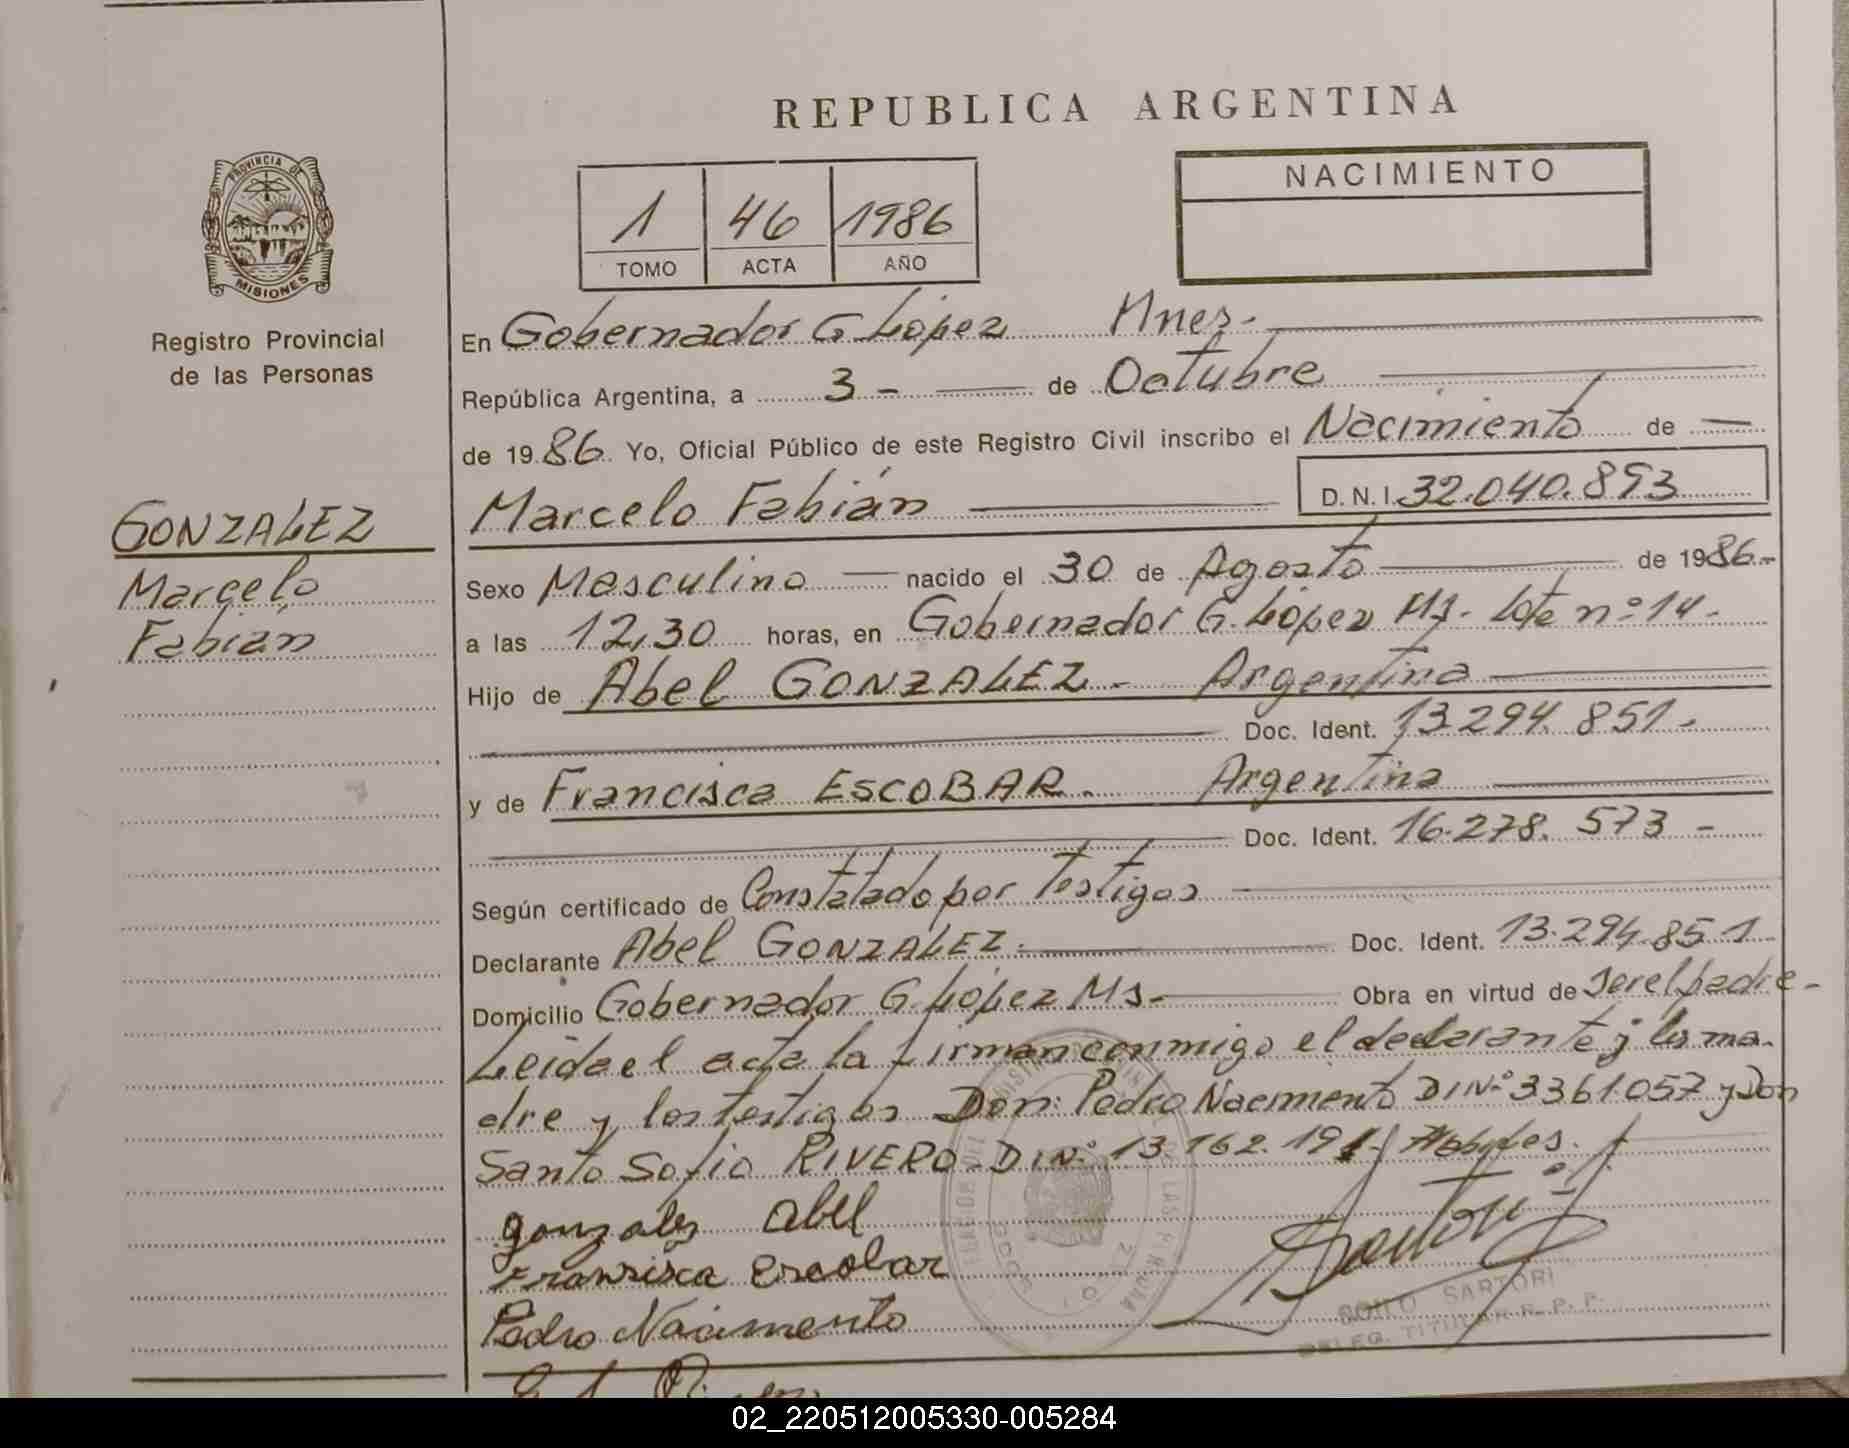 REPUBLICA ARGENTINA
PROVINCIA DE
MISIONES
Registro Provincial
de las Personas
1 46 1986
TOMO ACTA AÑO
NACIMIENTO
En Gobernador G. López Mnes.-
República Argentina, a 3 - de Octubre
de 1986 Yo, Oficial Público de este Registro Civil inscribo el Nacimiento de
Marcelo Fabián D.N.I. 32.040.853
GONZALEZ
Marcelo
Fabián
Sexo Masculino nacido el 30 de Agosto de 1986-
a las 12,30 horas, en Gobernador G. López Ms- Lote nº 14-
Hijo de Abel GONZALEZ - Argentina
Doc. Ident. 13.294.851-
y de Francisca ESCOBAR. Argentina
Doc. Ident. 16.278.573 -
Según certificado de Constatado por Testigos
Declarante Abel GONZALEZ. Doc. Ident. 13.294.851
Domicilio Gobernador G. López Ms- Obra en virtud de Ser el padre-
Leida el acta la firman conmigo el declarante y la ma-
dre y los testigos Don: Pedro Nacimiento DI Nº 3361057 y Don
Santo Sofio RIVERO - DI Nº 13.162.191-
gonzalez abel
Fransisca Escobar
Pedro Nacimento
SARTORI
DELEG. TITULAR R. P. P.
02_220512005330-005284